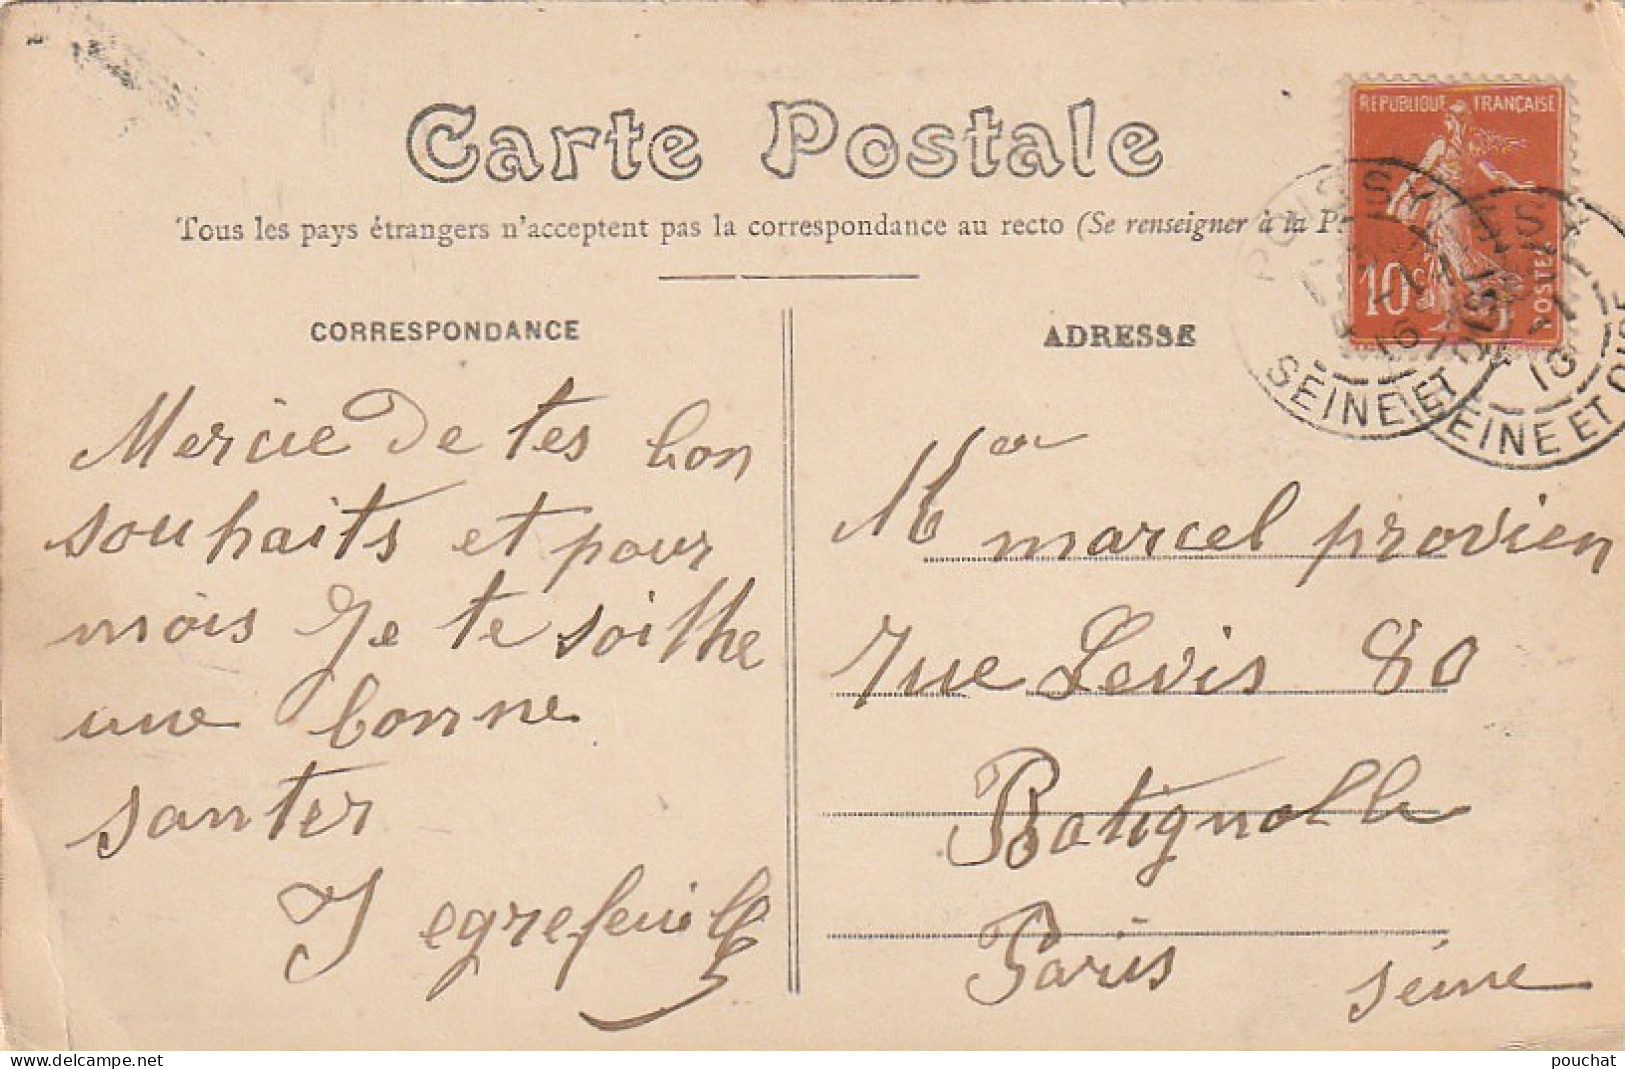 Carte Postale
Tous les pays étrangers n'acceptent pas la correspondance au recto (Se renseigner à la P
RÉPUBLIQUE FRANÇAISE
10c
POSTES
POISSY
SEINE ET
SEINE ET OISE
CORRESPONDANCE
Mercie de tes bon
souhaits et pour
mois Je te soithe
une bonne
santer
J egrefeuille
ADRESSE
M
marcel provien
rue Levis 80
Batignolle
Paris séine
pouchat